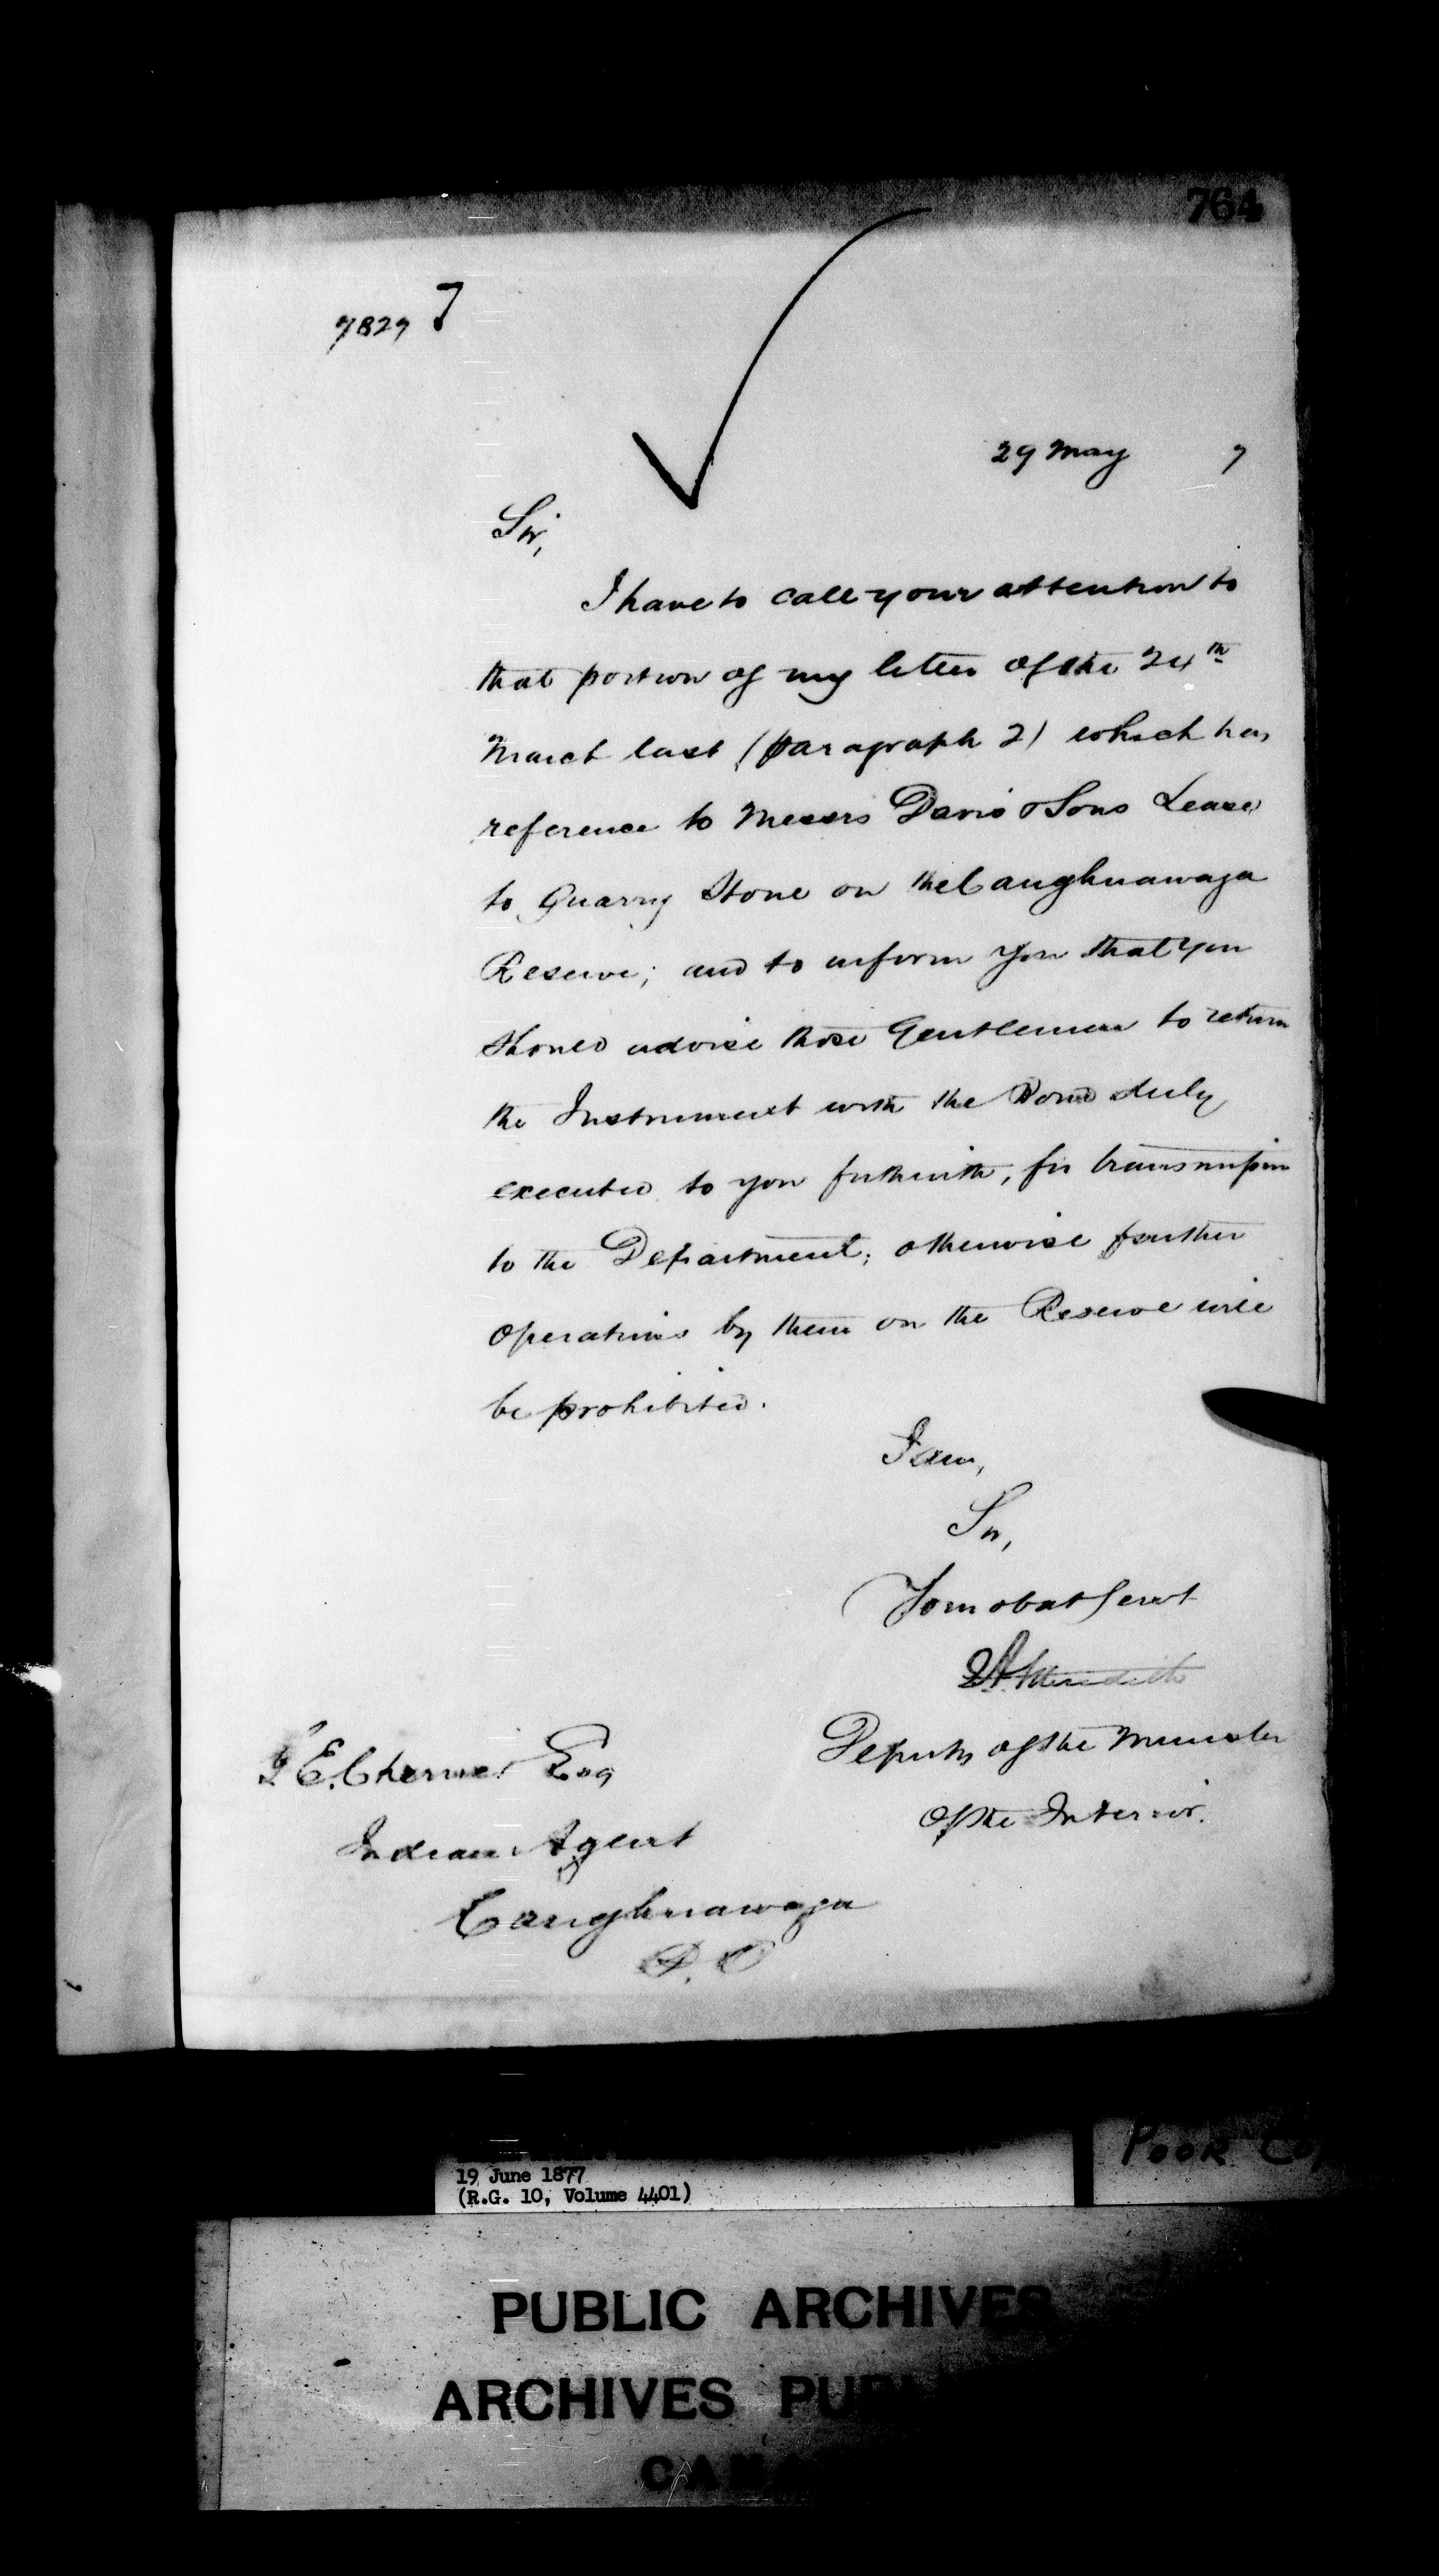 764
7827
29 May 7
Sir,
I have to call your attention to
that portion of my letter of the 24th
March last (paragraph 2) which has
reference to Messrs Davis & Sons Lease
to Quarry Stone on the Caughnawaga
Reserve; and to inform you that you
should advise those Gentlemen to return
the Instrument with the Bond duly
executed to you forthwith, for transmission
to the Department; otherwise further
operations by them on the Reserve will
be prohibited.
I am,
Sir,
Your obdt Servt
E A Meredith
Deputy of the Minister
of the Interior.
E. Cherrier Esq
Indian Agent
Caughnawaga
P. Q
19 June 1877
(R.G. 10, Volume 4401)
POOR
PUBLIC ARCHIVES
ARCHIVES